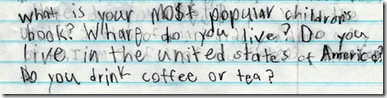 what is your most popular children's
book? Whare do you live? Do you
live in the united states of America?
Do you drink coffee or tea?